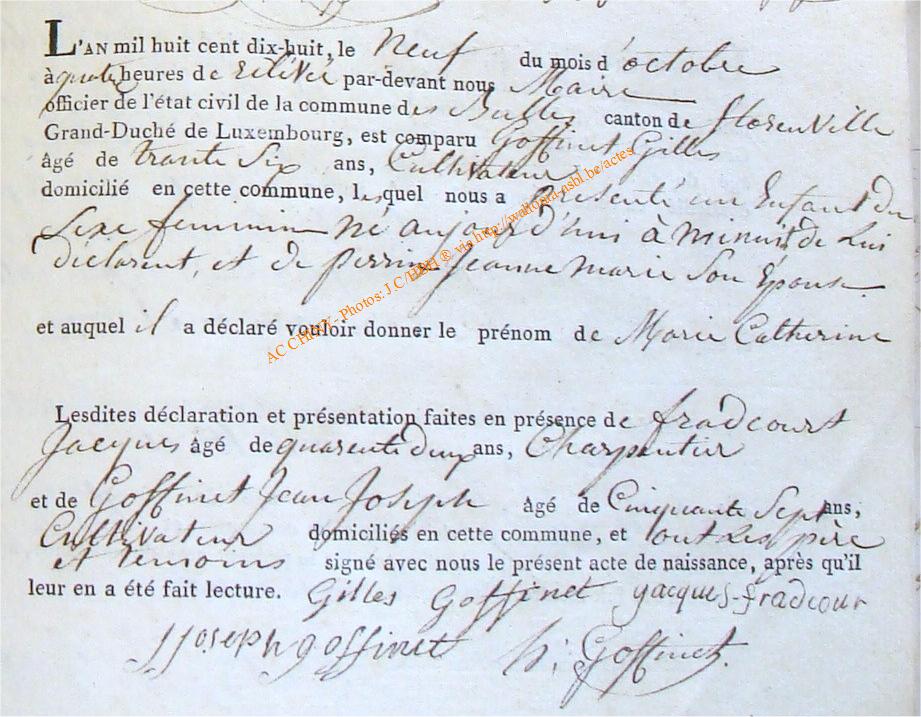 L'AN mil huit cent dix-huit, le Neuf du mois d'octobre
à quatre heures de relevée par-devant nous Maire
officier de l'état civil de la commune des Bulles canton de florenville
Grand-Duché de Luxembourg, est comparu Goffinet Gilles
âgé de trante Six ans, Cultivateur
domicilié en cette commune, lesquel nous a présenté un Enfant du
Sexe feminin né aujourd'hui à minuit de Lui
déclarent, et de perrin Jeanne marie Son Épouse.
et auquel il a déclaré vouloir donner le prénom de Marie Catherine
Lesdites déclaration et présentation faites en présence de fradcourt
Jacques âgé de quarente deux ans, Charpentier
et de Goffinet Jean Joseph âgé de Cinquante Sept ans,
Cultivateur domiciliés en cette commune, et ont Les père
et temoins signé avec nous le présent acte de naissance, après qu'il
leur en a été fait lecture. Gilles Goffinet yacques fradcour
JJoseph goffinet h: Goffinet.
AC CHINY - Photos: J.C/HBH ® via http://wallonia-asbl.be/actes